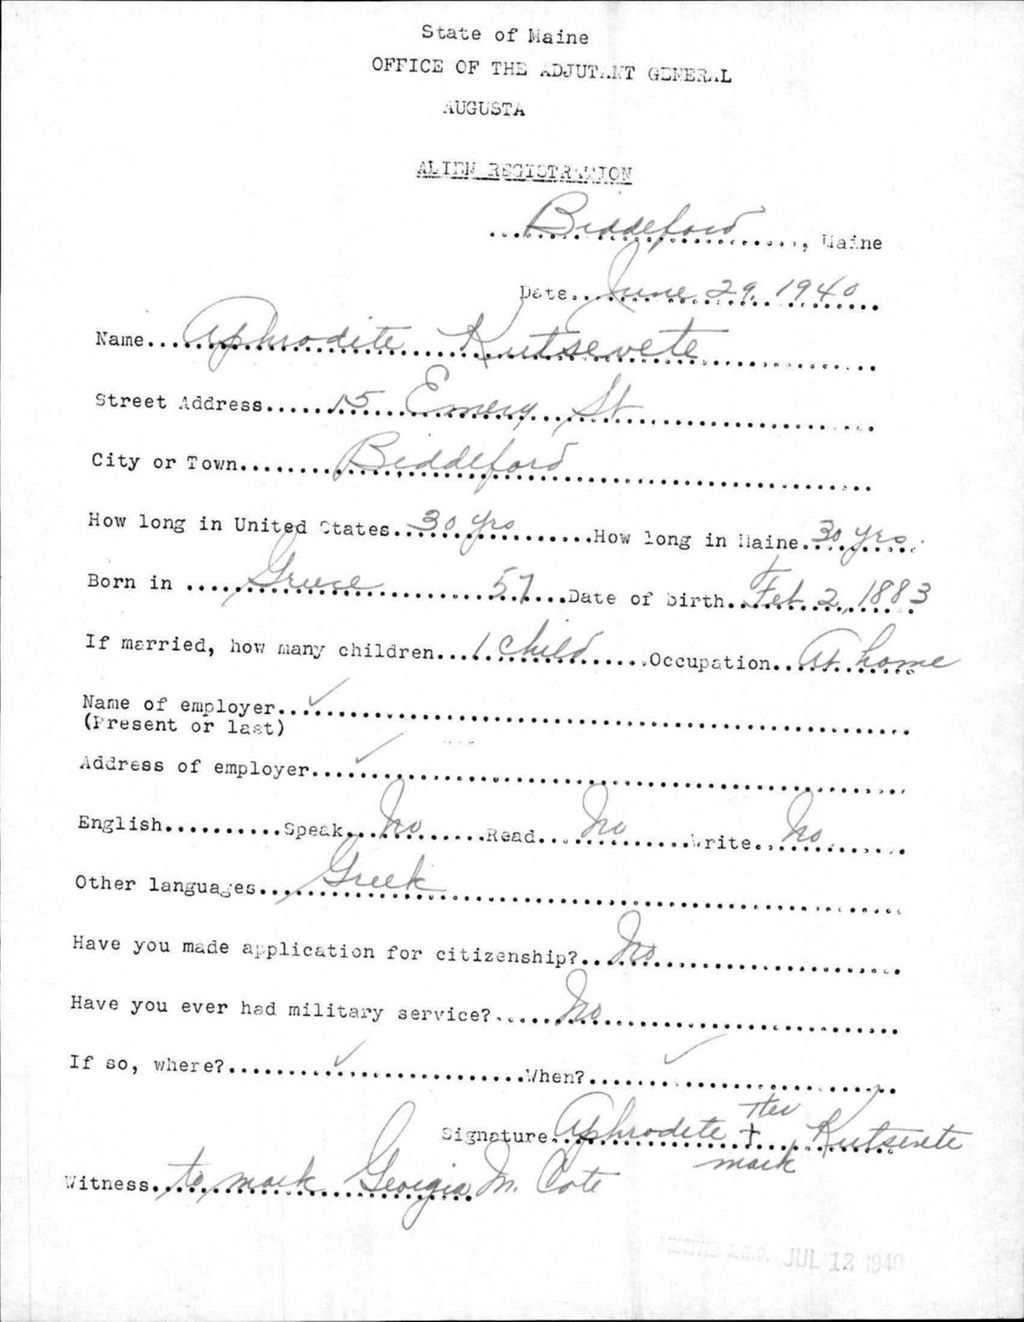 State of Maine
OFFICE OF THE ADJUTANT GENERAL
AUGUSTA
ALIEN REGISTRATION
Biddeford, Maine
Date June 29, 1940
Name Aphrodite Kutsevete
Street Address 15 Emery St
City or Town Biddeford
How long in United States 30 yrs How long in Maine 30 yrs
Born in Greece 57 Date of birth Feb 2, 1883
If married, how many children 1 child Occupation At home
Name of employer
(Present or last)
Address of employer
English Speak No Read No Write No
Other languages Greek
Have you made application for citizenship? No
Have you ever had military service? No
If so, where? When?
Signature Aphrodite Her + mark Kutsevete
Witness to mark Georgia M. Cote
JUL 12 1940